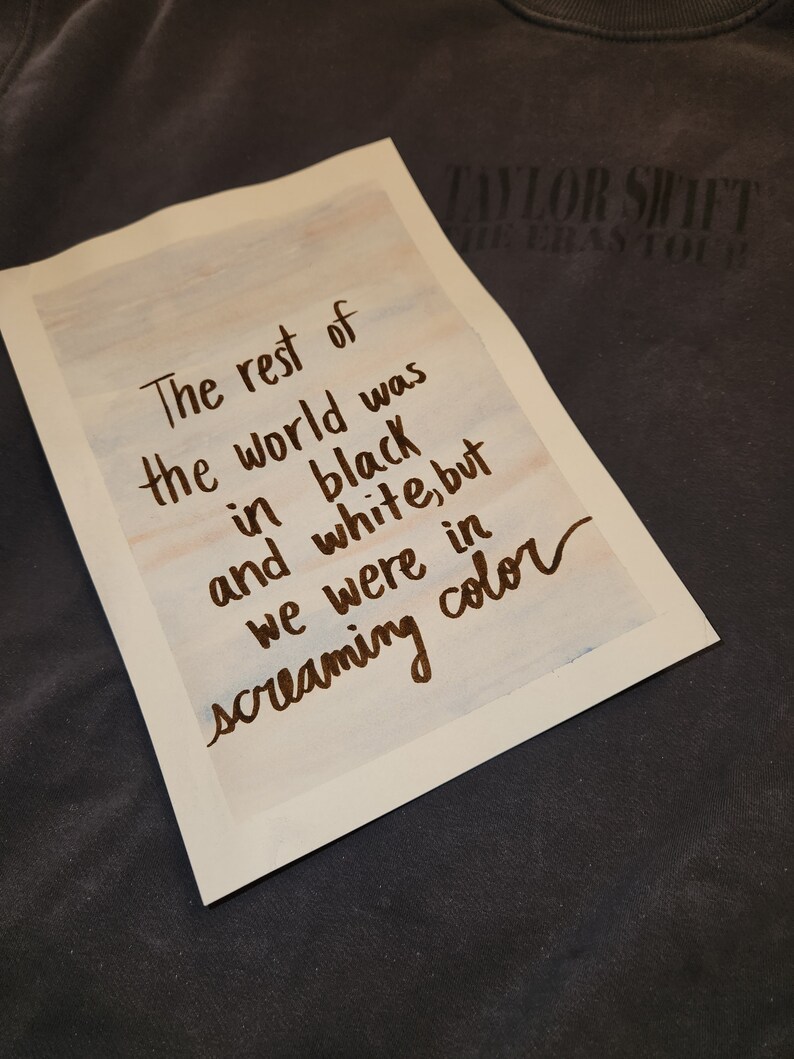 TAYLOR SWIFT
THE ERAS TOUR
The rest of
the world was
in black
and white, but
we were in
screaming color